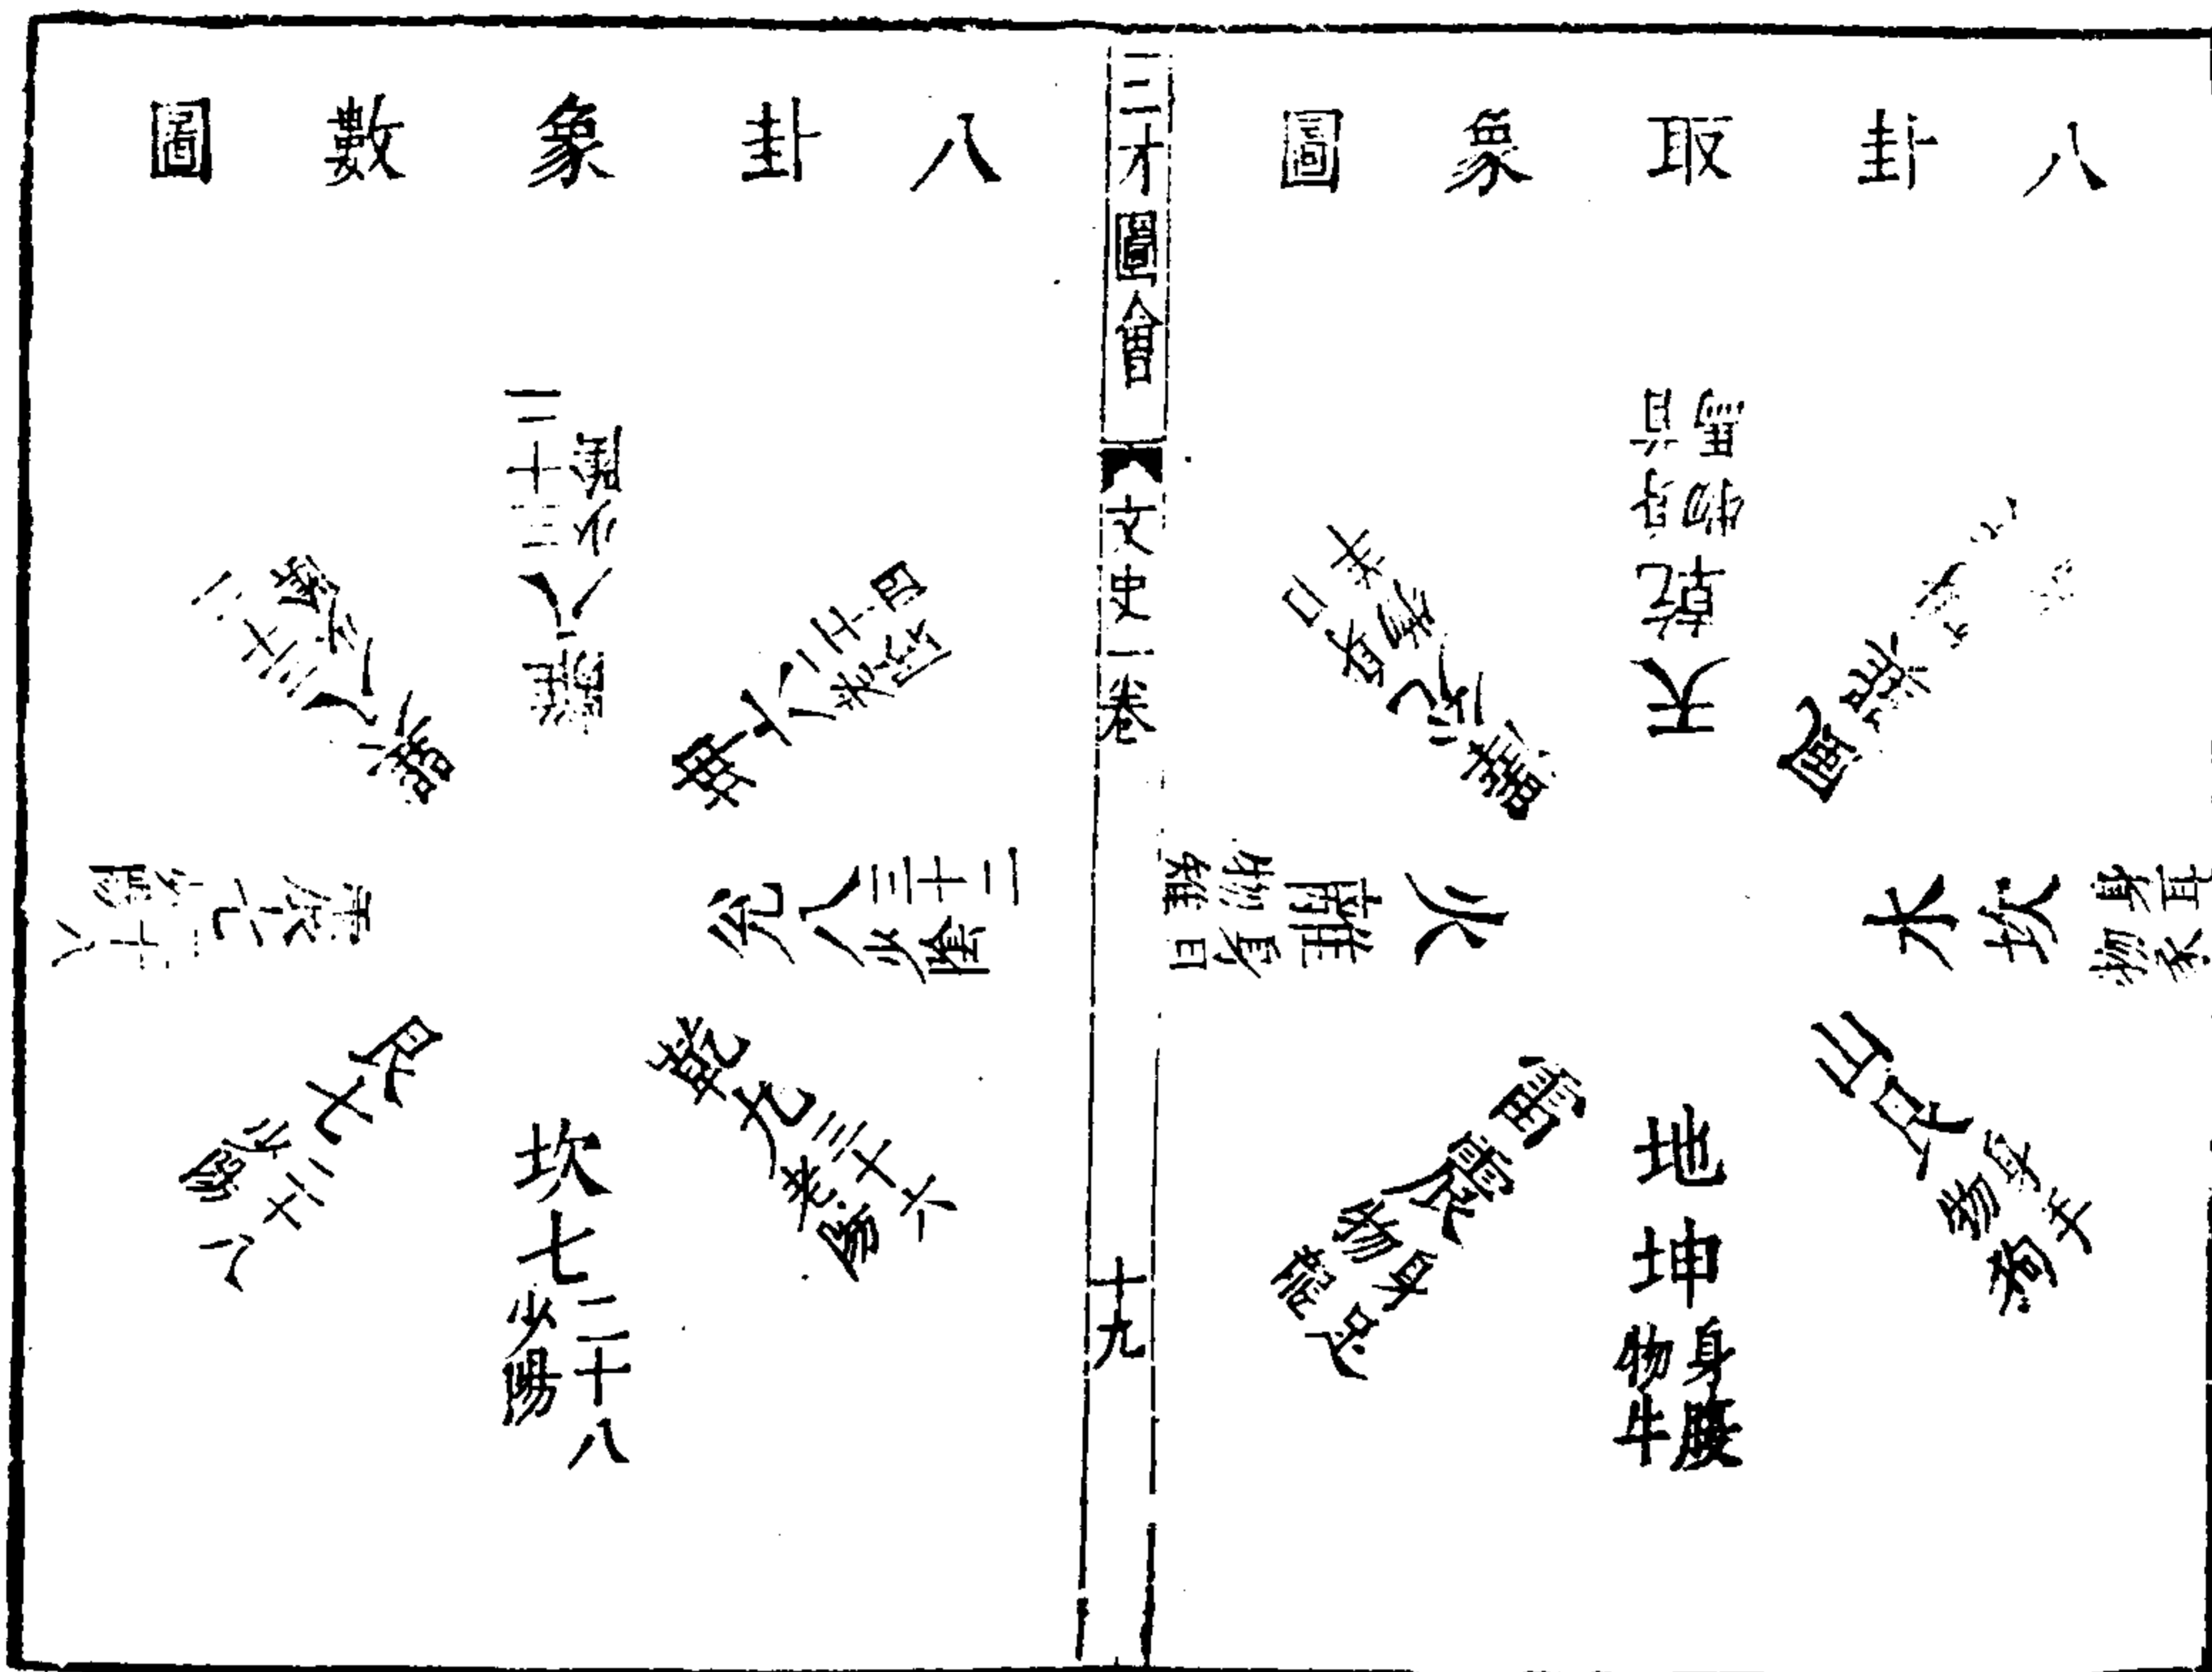 八卦取象圖
天乾物身首
風巽
水坎身耳物豕
山艮身手物狗
地坤身腹物牛
雷震物身足龍
火離物身雉目
澤兌身口羊
三才圖會
文史一卷
十九
八卦象數圖
離八三十二少陰
坤六二十四老陰
兌八三十二少陰
乾九三十六老陽
坎七二十八少陽
艮七二十八少陽
震七二十八少陽
巽八三十二少陰